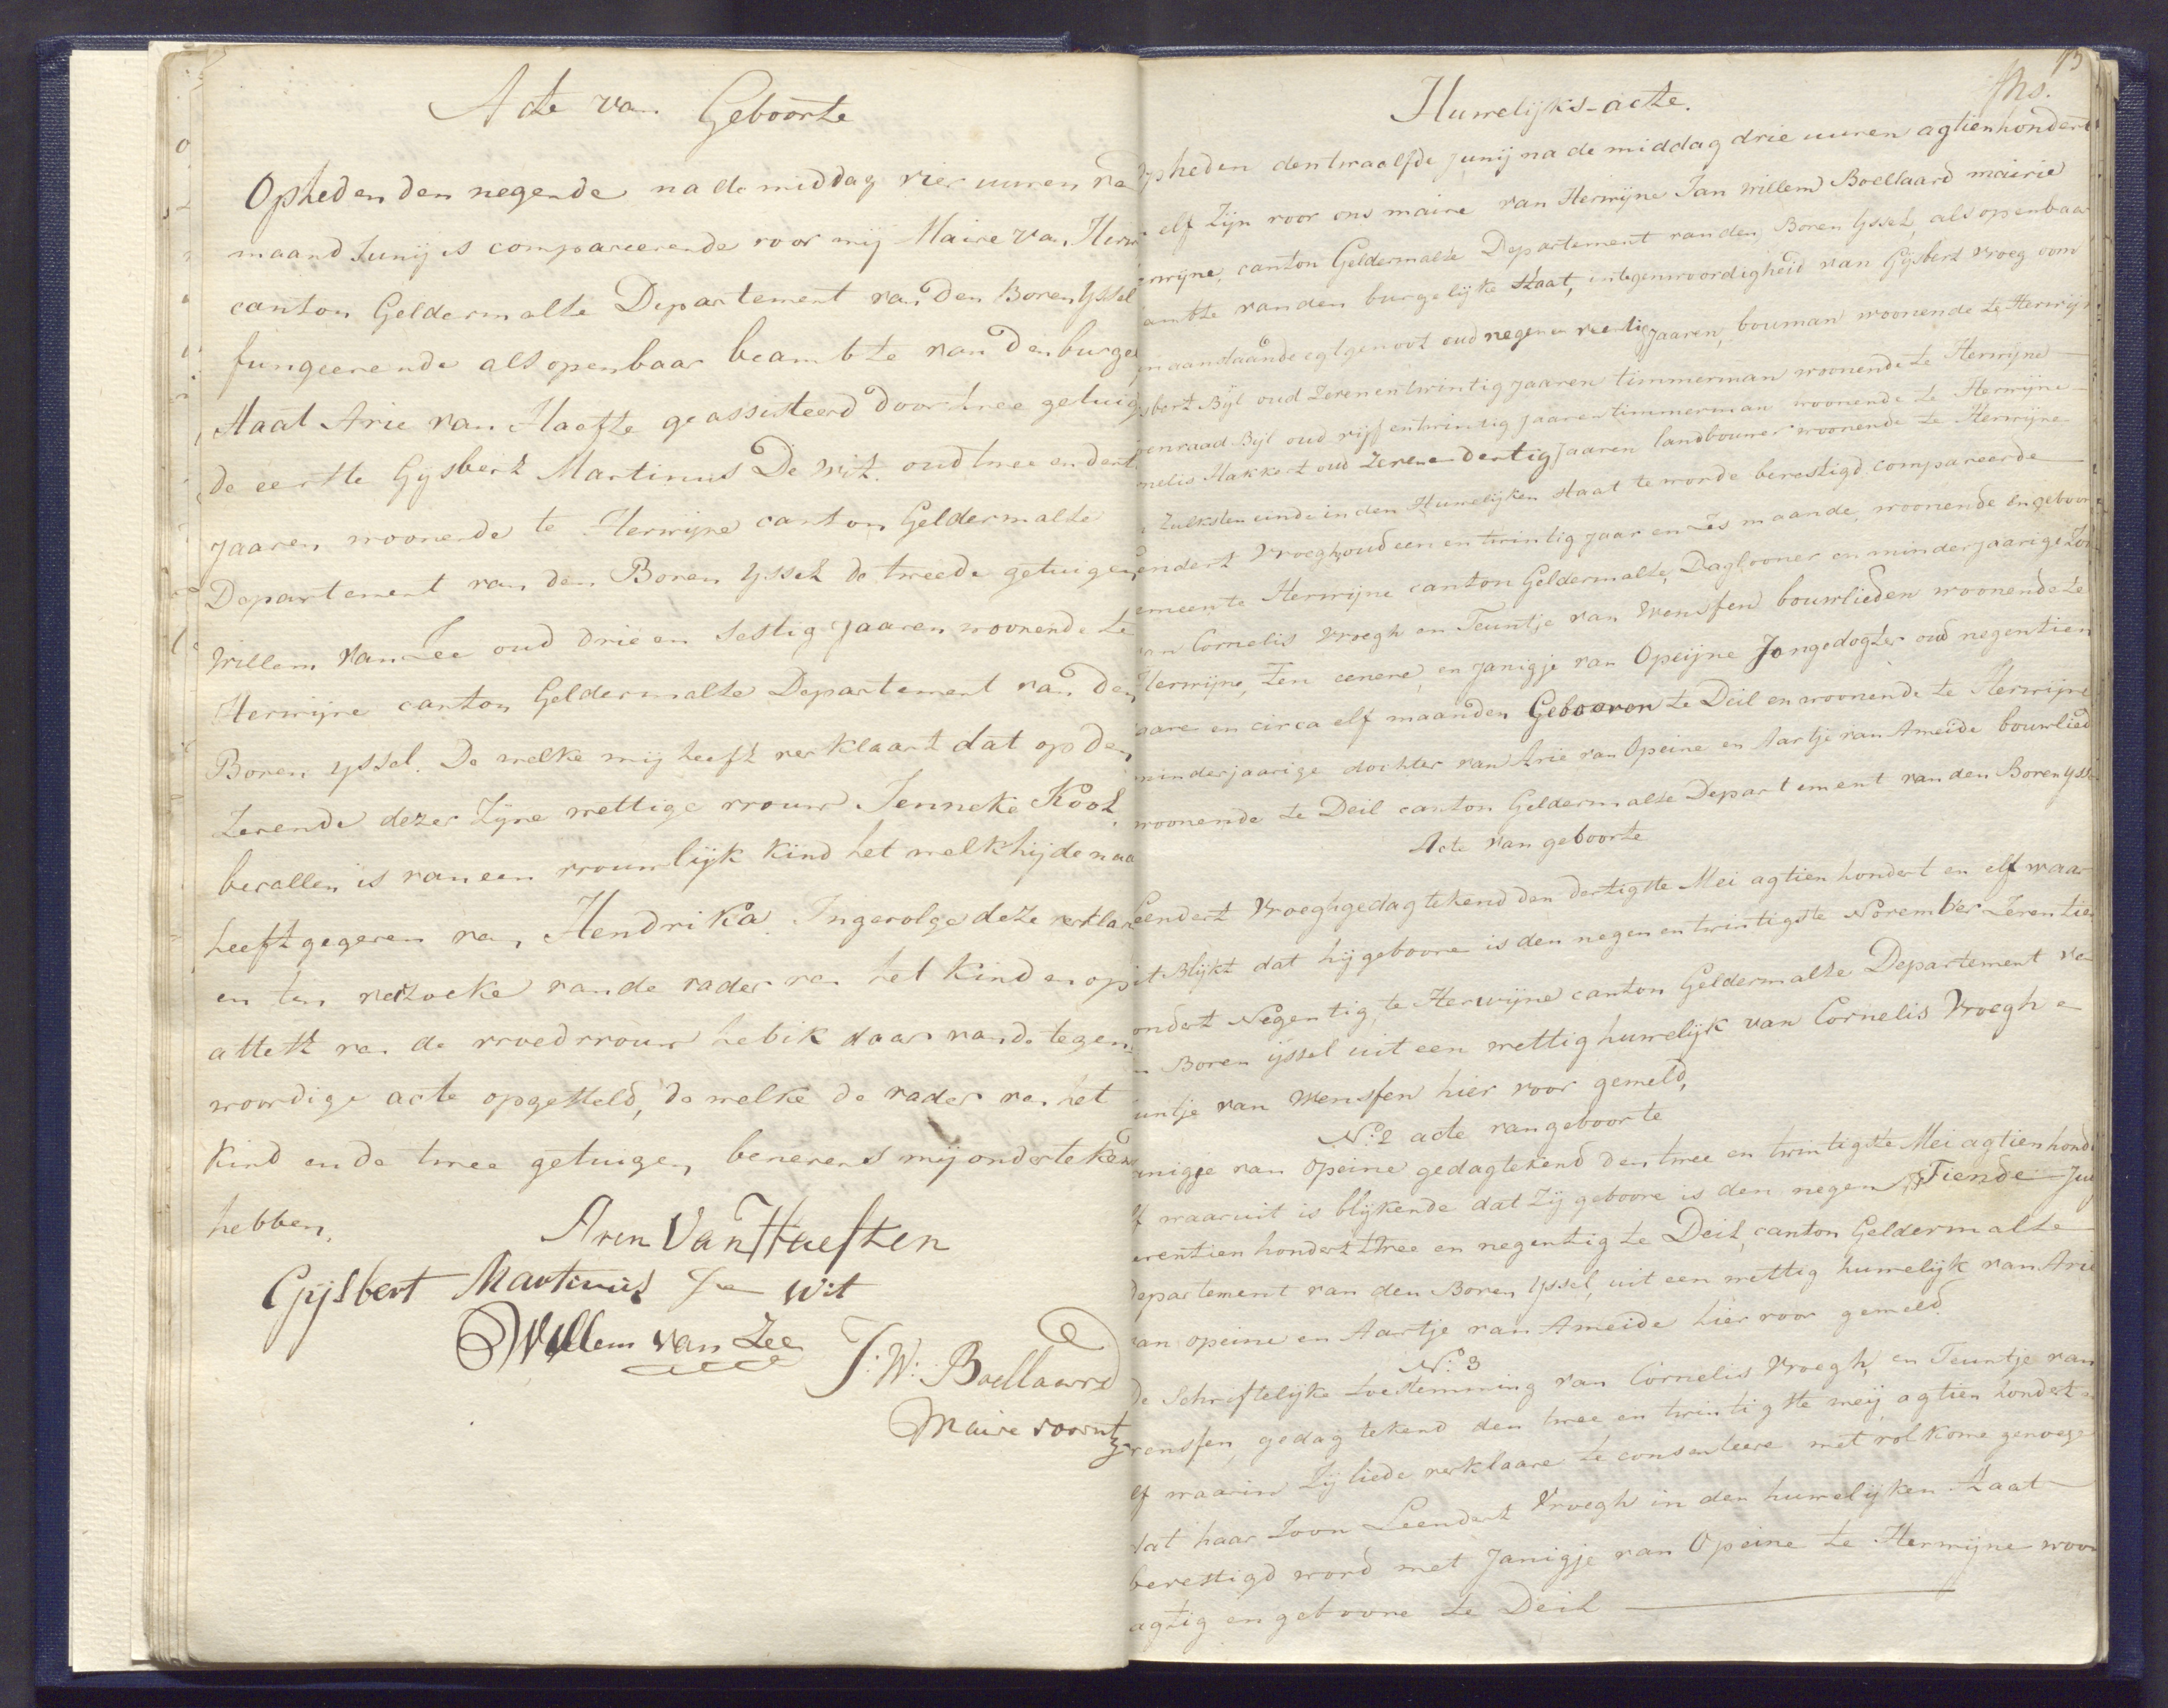 Acte van Geboorte
Opheden den negende na de middag vier uuren va
maand Junij is compareerende voor mij Maire van Herw
canton Geldermalse Departement van den Boven Yssel
fungeerende als openbaar beambte van den burge
staat Arie van Haefte geassisteerd door twee getuig
de eerste Gysbert Martinus De Wit. oud twee en dert
Jaaren woonende te Herwijne canton Geldermalse
Departement van den Boven Yssel de tweede getuigen
Willem van Zee oud drie en sestig Jaaren woonende te
Herwijne canton Geldermalse Departement van den
Boven yssel. De welke mij heeft verklaart dat op den
Zevende dezer Zijne wettige vrouw Jenneke Kool
bevallen is van een vrouwlijk kind het welk hij de naa
heeft gegeven van Hendrika. Ingevolge deze verklar
en ten verzoeke van de vader van het kind en op
attest van de vroedvrouw heb ik daar van de tegen
woordige acte opgesteld, de welke de vader van het
kind en de twee getuigen benevens mij onderteken
hebben.
Aren Van Haeften
Gijsbert Martinus De Wit
Willem van Zee
J: W: Boellaard
Maire voornt
73
Huwelijks-acte.
Opheden den twaalfde Junij na de middag drie uuren agtienhondert
elf Zijn voor ons maire van Herwijne Jan Willem Boellaard mairie
rwijne, canton Geldermalse Departement van den Boven Yssel, als openbaar
ambte van den burgelijke staat, in tegenwoordigheid van Gijsbert Vroeg oom
en aanstaande egtgenoot oud negen en veertig Jaaren, bouman woonende te Herwijn
sbert Bijl oud Zeven en twintig Jaaren timmerman woonende te Herwijne
oenraad Bijl oud vijf en twintig Jaaren timmerman woonende te Herwijne
nelis Hakkert oud Zeven en dertig Jaaren landbouwer woonende te Herwijne
Zulksten einde in den Huwelijken staat te worde bevestigd compareerde
eendert Vroegh, oud een en twintig jaar en Zes maande, woonende en geboor
emeente Herwijne canton Geldermalse, Daglooner en minderjaarige Zoo
an Cornelis Vroegh en Teuntje van Wensfen bouwlieden woonende te
Herwijne, Ten eenere, en Janigje van Opeijne Jongedogter oud negentien
aare en circa elf maanden Gebooren te Deil en woonende te Herwijne
minderjaarige dochter van Arie van Opeine en Aartje van Ameide bouwlied
woonende te Deil canton Geldermalse Departement van den Boven Yss
Acte van geboorte
Leendert Vroegh gedagtekend den dertigste Mei agtien hondert en elf waar
it Blijkt dat hij geboore is den negen en twintigste November Zeventien
ondert Negentig, te Herwijne canton Geldermalse Departement va
n Boven ijssel uit een wettig huwelijk van Cornelis Vroegh e
untje van Wensfen hier voor gemeld,
N:o 2 acte van geboorte
anigje van Opeine gedagtekend den twee en twintigste Mei agtienhond
lf waaruit is blijkende dat Zij geboore is den negen Tiende Ju
eventien hondert twee en negentig te Deil, canton Geldermalse
Departement van den Boven Yssel, uit een wettig huwelijk van Arie
van Opeine en Aartje van Ameide hier voor gemeld
N:o 3
De Schriftelijke toestemming van Cornelis Vroegh, en Teuntje van
rensfen, gedagtekend den twee en twintigste meij agtien hondert
elf waarin Zij liede verklaare te consenteere met volkome genoege
dat haar Zoon Leendert Vroegh in den huwelijken staat
bevestigd word met Janigje van Opeine te Herwijne woon
agtig en geboore te Deil